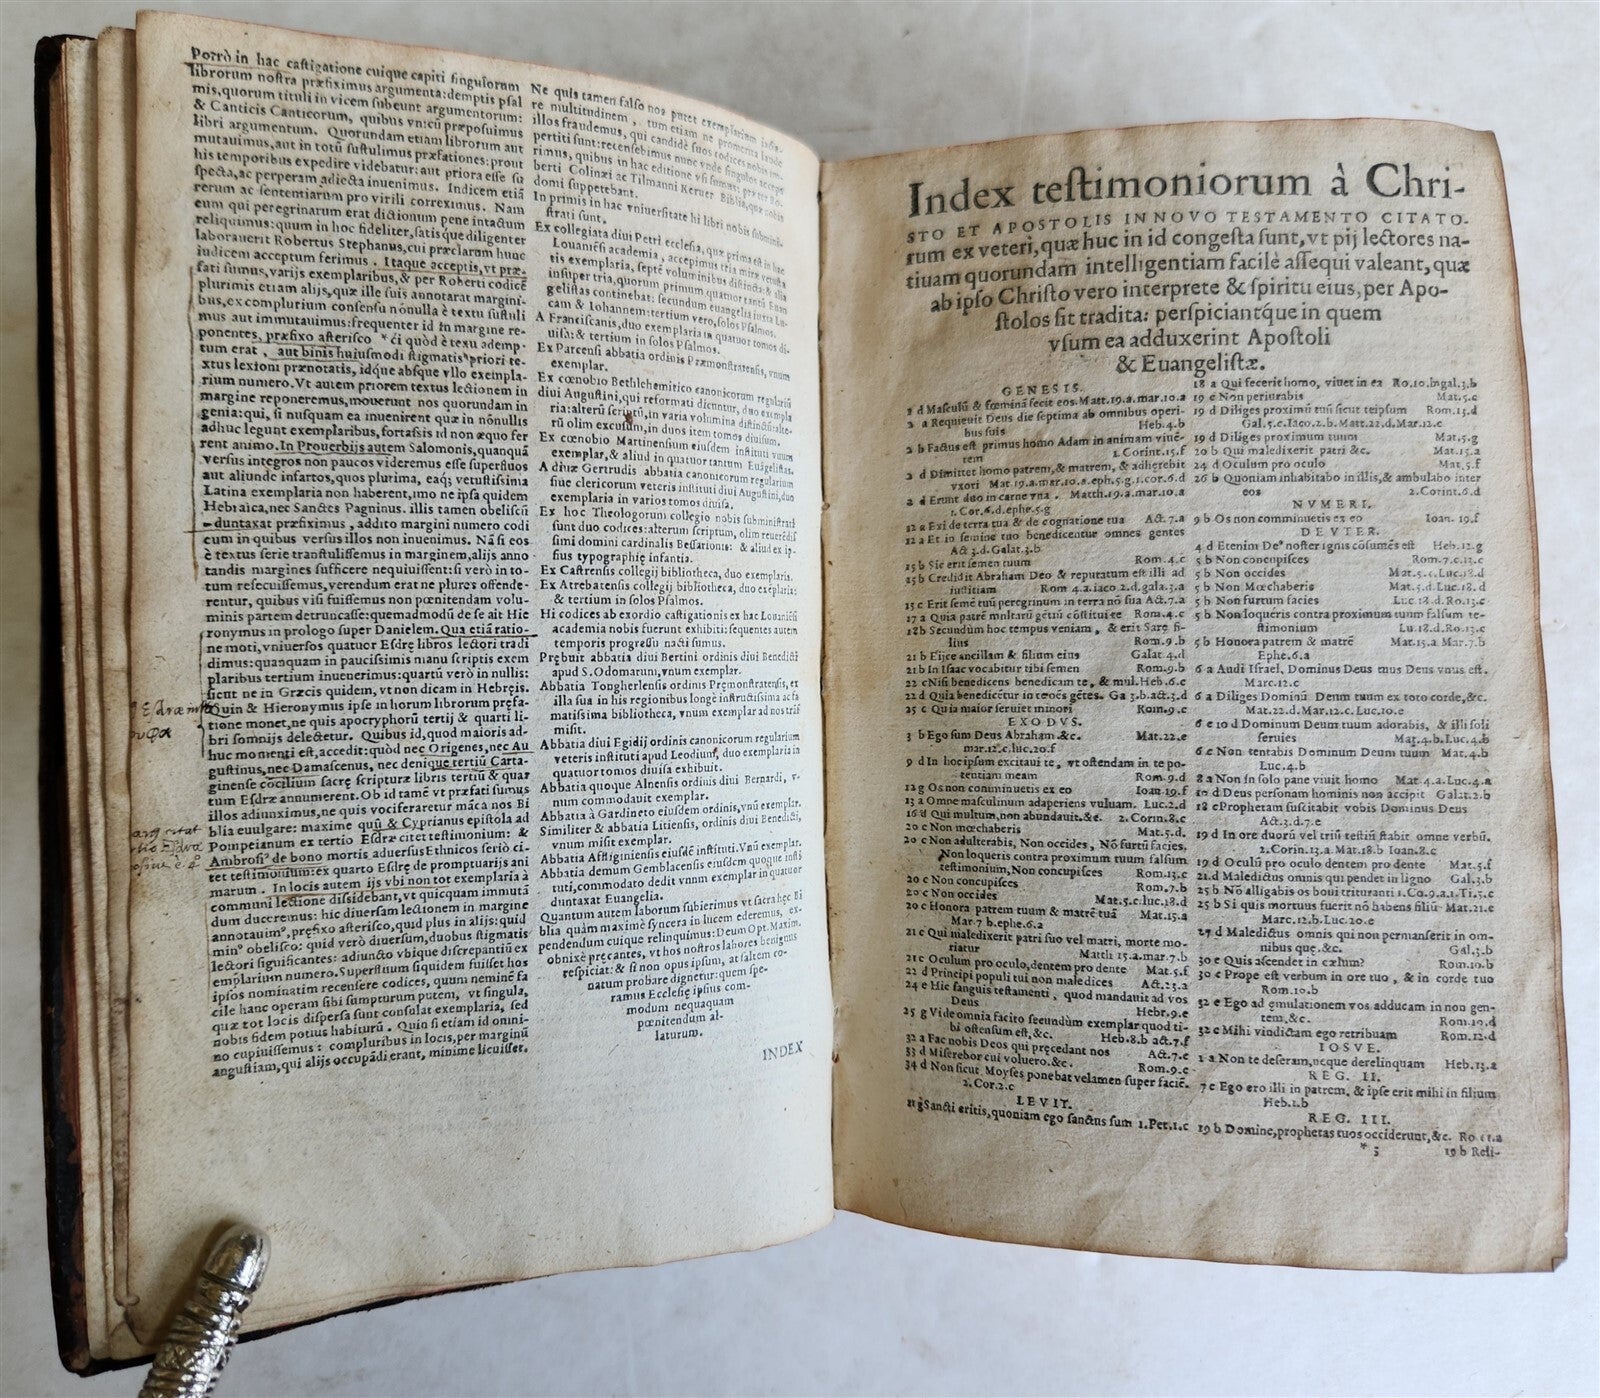 Porrò in hac castigatione cuique capiti singulorum
librorum nostra præfiximus argumenta: demptis psal
mis, quorum tituli in vicem subeunt argumentorum:
& Canticis Canticorum, quibus vnicũ præposuimus
libri argumentum. Quorundam etiam librorum aut
mutauimus, aut in totũ sustulimus præfationes: prout
his temporibus expedire videbatur: aut priora esse su
specta, ac perperam adiecta inuenimus. Indicem etiã
rerum ac sententiarum pro virili correximus. Nam
eum qui peregrinarum erat dictionum pene intactum
reliquimus: quum in hoc fideliter, satisque diligenter
laborauerit Robertus Stephanus, cui præclarum hunc
iudicem acceptum ferimus. Itaque acceptis, vt præ-
fati sumus, varijs exemplaribus, & per Roberti codicẽ
plurimis etiam alijs, quæ ille suis annotarat margini-
bus, ex complurium consensu nõnulla è textu sustuli
mus aut immutauimus: frequenter id in margine re-
ponentes, præfixo asterisco * ei quòd è textu ademp-
tum erat, aut binis huiusmodi stigmatis " priori te-
xtus lexioni prænotatis, idque absque vllo exempla-
rium numero. Vt autem priorem textus lectionem in
margine reponeremus, mouerunt nos quorundam in
genia: qui, si nusquam ea inuenirent quæ in nõnullis
adhuc legunt exemplaribus, fortassis id non æquo fer
rent animo. In Prouerbijs autem Salomonis, quanquã
versus integros non paucos videremus esse superfluos
aut aliunde infartos, quos plurima, eaq; vetustissima
Latina exemplaria non haberent, imo ne ipsa quidem
Hebraica, nec Sanctes Pagninus. illis tamen obeliscũ
duntaxat præfiximus, addito margini numero codi
cum in quibus versus illos non inuenimus. Nã si eos
è textus serie transtulissemus in marginem, alijs anno
tandis margines sufficere nequiuissent: si verò in to-
tum resecuissemus, verendum erat ne plures offende-
rentur, quibus visi fuissemus non pœnitendam volu-
minis partem detruncasse: quemadmodũ de se ait Hie
ronymus in prologo super Danielem. Qua etiã ratio-
ne moti, vniuersos quatuor Esdrę libros lectori tradi
dimus: quanquam in paucissimis manu scriptis exem
plaribus tertium inuenerimus: quartũ verò in nullis:
sicut ne in Græcis quidem, vt non dicam in Hebręis.
Quin & Hieronymus ipse in horum librorum præfa-
tione monet, ne quis apocryphorũ tertij & quarti li-
bri somnijs delectetur. Quibus id, quod maioris ad-
huc momenti est, accedit: quòd nec Origenes, nec Au
gustinus, nec Damascenus, nec denique tertiũ Carta-
ginense cõcilium sacrę scripturæ libris tertiũ & quar
tum Esdræ annumerent. Ob id tamẽ vt præfati sumus
illos adiunximus, ne quis vociferaretur mãca nos Bi
blia euulgare: maxime quũ & Cyprianus epistola ad
Pompeianum ex tertio Esdræ citet testimonium: &
Ambrosiꝰ de bono mortis aduersus Ethnicos seriò ci-
tet testimonium: ex quarto Esdrę de promptuarijs ani
marum. In locis autem ijs vbi non tot exemplaria à
communi lectione dissidebant, vt quicquam immutã
dum duceremus: hic diuersam lectionem in margine
annotauimꝰ, pręfixo asterisco, quid plus in alijs: quid
minꝰ obelisco: quid verò diuersum, duobus stigmatis
lectori significantes: adiuncto vbique discrepantiũ ex
emplarium numero. Superfluum siquidem fuisset hos
ipsos nominatim recensere codices, quum neminẽ fa
cile hanc operam sibi sumpturum putem, vt singula,
quæ tot locis dispersa sunt consulat exemplaria, sed
nobis fidem potius habiturũ. Quin si etiam id omni-
no cupiuissemus: compluribus in locis, per marginũ
angustiam, qui alijs occupãdi erant, minime licuisset.
Ne quis tamen falso nos putet exemplarium
re multitudinem, tum etiam ne promerita laude
illos fraudemus, qui candidè suos codices nobis im-
pertiti sunt: recensebimus nunc vnde singulos accepe
rimus, quibus in hac editione vsi sumus: præter Ro-
berti Colinæi ac Tilmanni Keruer Biblia, quæ nobis
domi suppetebant.
In primis in hac vniuersitate hi libri nobis submini-
strati sunt.
Ex collegiata diui Petri ecclesia, quæ prima est in hac
Louaniẽsi academia, accepimus tria miræ vetusta
tis exemplaria, septẽ voluminibus distincta: & alia
insuper tria, quorum primum quatuor tantũ Euan
gelistas continebat: secundum euangelia iuxta Lu-
cam & Iohannem: tertium vero, solos Psalmos.
A Franciscanis, duo exemplaria in quatuor tomos di-
uisa: & tertium in solos Psalmos.
Ex Parcensi abbatia ordinis Præmonstratensis, vnum
exemplar.
Ex cœnobio Bethlehemitico canonicorum regulariũ
diui Augustini, qui reformati dicuntur, duo exempla
ria: alterũ scriptũ, in varia volumina distinctũ: alte-
rũ olim excusum, in duos item tomos diuisum.
Ex cœnobio Martinensium eiusdem instituti vnum
exemplar, & aliud in quatuor tantum Euãgelistas.
A diuæ Gertrudis abbatia canonicorum regularium
siue clericorum veteris instituti diui Augustini, duo
exemplaria in varios tomos diuisa.
Ex hoc Theologorum collegio nobis subministrati
sunt duo codices: alterum scriptum, olim reuerẽdis
simi domini cardinalis Bessarionis: & aliud ex ip-
sius typographię infantia.
Ex Castrensis collegij bibliotheca, duo exemplaria.
Ex Atrebatensis collegij bibliotheca, duo exeplaria:
& tertium in solos Psalmos.
Hi codices ab exordio castigationis ex hac Louaniẽsi
academia nobis fuerunt exhibiti: sequentes autem
temporis progressu nacti sumus.
Prębuit abbatia diui Bertini ordinis diui Benedicti
apud S. Odomarum, vnum exemplar.
Abbatia Tongherlensis ordinis Pręmonstratensis, ex
illa sua in his regionibus longè instructissima ac fa
matissima bibliotheca, vnum exemplar ad nos trãs
misit.
Abbatia diui Egidij ordinis canonicorum regularium
veteris instituti apud Leodium, duo exemplaria in
quatuor tomos diuisa exhibuit.
Abbatia quoque Alnensis ordinis diui Bernardi, v-
num commodauit exemplar.
Abbatia à Gardineto eiusdem ordinis, vnũ exemplar.
Similiter & abbatia Litiensis, ordinis diui Benedicti,
vnum misit exemplar.
Abbatia Affligniensis eiusdẽ instituti. Vnũ exemplar.
Abbatia demum Gemblacensis eiusdem quoque insti
tuti, commodato dedit vnum exemplar in quatuor
duntaxat Euangelia.
Quantum autem laborum subierimus vt sacra hęc Bi
blia quàm maximè syncera in lucem ederemus, ex-
pendendum cuique relinquimus: Deum Opt. Maxim.
obnixè pręcantes, vt hos nostros labores benignus
respiciat: & si non opus ipsum, at saltem co-
natum probare dignetur: quem spe-
ramus Ecclesię ipsius com-
modum nequaquam
pœnitendum al-
laturum.
INDEX
Index testimoniorum à Chri-
STO ET APOSTOLIS IN NOVO TESTAMENTO CITATO-
rum ex veteri, quæ huc in id congesta sunt, vt pij lectores na-
tiuam quorundam intelligentiam facilè assequi valeant, quæ
ab ipso Christo vero interprete & spiritu eius, per Apo-
stolos sit tradita: perspiciantq́ue in quem
vsum ea adduxerint Apostoli
& Euangelistæ.
GENESIS.
1 d Masculũ & fœminã fecit eos. Matt.19.a.mar.10.a
2 a Requieuit Deus die septima ab omnibus operi-
bus suis Heb.4.b
2 b Factus est primus homo Adam in animam viuẽ-
tem 1.Corint.15.f
2 d Dimittet homo patrem, & matrem, & adherebit
vxori Mat.19.a.mar.10.a.eph.5.g.1.cor.6.d
2 d Erunt duo in carne vna. Matth.19.a.mar.10.a
1.Cor.6.d.ephe.5.g
12 a Exi de terra tua & de cognatione tua Act.7.a
12 a Et in semine tuo benedicentur omnes gentes
Act 3.d.Galat.3.b
15 b Sic erit semen tuum Rom.4.c
15 b Credidit Abraham Deo & reputatum est illi ad
iustitiam Rom 4.a.iaco 2.d.gala.3.a
15 c Erit semẽ tuũ peregrinum in terra nõ sua Act.7.a
17 a Quia patrẽ multarũ gẽtiũ cõstitui te Rom.4.c
18 b Secundùm hoc tempus veniam, & erit Saræ fi-
lius Rom.9.b
21 b Eijce ancillam & filium eius Galat.4.d
21 b In Isaac vocabitur tibi semen Rom.9.b
22 c Nisi benedicens benedicam te, & mul. Heb.6.c
22 d Quia benedicẽtur in te oẽs gẽtes. Ga 3.b.act.3.d
25 c Quia maior seruiet minori Rom.9.c
EXODVS.
3 b Ego sum Deus Abraham .&c. Mat.22.e
mar.12.c.luc.20.f
9 d In hoc ipsum excitaui te, vt ostendam in te po-
tentiam meam Rom.9.d
12 g Os non comminuetis ex eo Ioan.19.f
13 a Omne masculinum adaperiens vuluam. Luc.2.d
16 d Qui multum, non abundauit.&c. 2.Corin.8.c
20 c Non mœchaberis Mat.5.d.
20 c Non adulterabis, Non occides, Nõ furtũ facies,
Non loqueris contra proximum tuum falsum
testimonium, Non concupisces Rom.13.c
20 c Non concupisces Rom.7.b
20 c Non occides Mat.5.c.luc.18.d
20 c Honora patrem tuum & matrẽ tuã Mat.15.a
Mar 7.b.ephe.6.a
21 c Qui maledixerit patri suo vel matri, morte mo-
riatur Matth 15.a.mar.7.b
21 c Oculum pro oculo, dentem pro dente Mat.5.f
22 d Principi populi tui non maledices Act.23.a
24 e Hic sanguis testamenti, quod mandauit ad vos
Deus Hebr.9.e
25 g Vide omnia facito secundùm exemplar quod ti-
bi ostensum est, &c. Heb.8.b act.7.f
32 a Fac nobis Deos qui pręcedant nos Act.7.e
33 d Miserebor cui voluero.&c. Rom.9.c
34 d Non sicut Moyses ponebat velamen super faciẽ.
2.Cor.2.c
LEVIT.
11 g Sancti eritis, quoniam ego sanctus sum 1.Pet.1.c
18 a Qui fecerit homo, viuet in ea Ro.10.b gal.3.b
19 c Non periurabis Mat.5.c
19 d Diliges proximũ tuũ sicut teipsum Rom.13.d
Gal.5.c.Iaco.2.b.Matt.22.d.Mar.12.c
19 d Diliges proximum tuum Mat.5.g
20 b Qui maledixerit patri &c. Mat.15.a
24 d Oculum pro oculo Mat.5.f
26 b Quoniam inhabitabo in illis, & ambulabo inter
eos 2.Corint.6.d
NVMERI.
9 b Os non comminuetis ex eo Ioan. 19.f
DEVTER.
4 d Etenim Deꝰ noster ignis cõsumẽs est Heb.12.g
5 b Non concupisces Rom.7.c.13.c
5 b Non occides Mat.5.c.Luc.18.d
5 b Non Mœchaberis Mat.5.d.Luc.18.d
5 b Non furtum facies Luc.18.d.Ro.13.c
5 b Non loqueris contra proximum tuum falsum te-
stimonium Lu.18.d.Ro.13.c
5 b Honora patrem & matrẽ Mat.15.a Mar.7.b
Ephe.6.a
6 a Audi Israel, Dominus Deus tuus Deus vnus est.
Marc.12.c
6 a Diliges Dominũ Deum tuum ex toto corde, &c.
Mat.22.d.Mar.12.c.Luc.10.e
6 c 10 d Dominum Deum tuum adorabis, & illi soli
seruies Mat.4.b.Luc.4.b
6 c Non tentabis Dominum Deum tuum Mat.4.b
Luc.4.b
8 a Non in solo pane viuit homo Mat.4.a.Luc.4.a
10 d Deus personam hominis non accipit Galat.2.b
18 c Prophetam suscitabit vobis Dominus Deus
Act.3.d.7.e
19 d In ore duorũ vel triũ testiũ stabit omne verbũ.
2.Corin.13.a.Mat.18.b Ioan.8.c
19 d Oculũ pro oculo dentem pro dente Mat.5.f
21.d Maledictus omnis qui pendet in ligno Gal.3.b
25 b Nõ alligabis os boui trituranti 1.Co.9.a.1.Ti.5.c
25 b Si quis mortuus fuerit nõ habens filiũ Mat.21.e
Marc.12.b.Luc.20.e
27 d Maledictus omnis qui non permanserit in om-
nibus quę.&c. Gal.3.b
30 c Quis ascendet in cælum? Rom.10.b
30 c Prope est verbum in ore tuo, & in corde tuo
Rom.10.b
32 c Ego ad ęmulationem vos adducam in non gen-
tem,&c. Rom.10.d
32 c Mihi vindictam ego retribuam Rom.12.d
IOSVE.
1 a Non te deseram, neque derelinquam Heb.13.a
REG. II.
7 c Ego ero illi in patrem, & ipse erit mihi in filium
Heb.1.b
REG. III.
19 b Domine, prophetas tuos occiderunt, &c. Ro 11.a
* 5
19 b Reli-